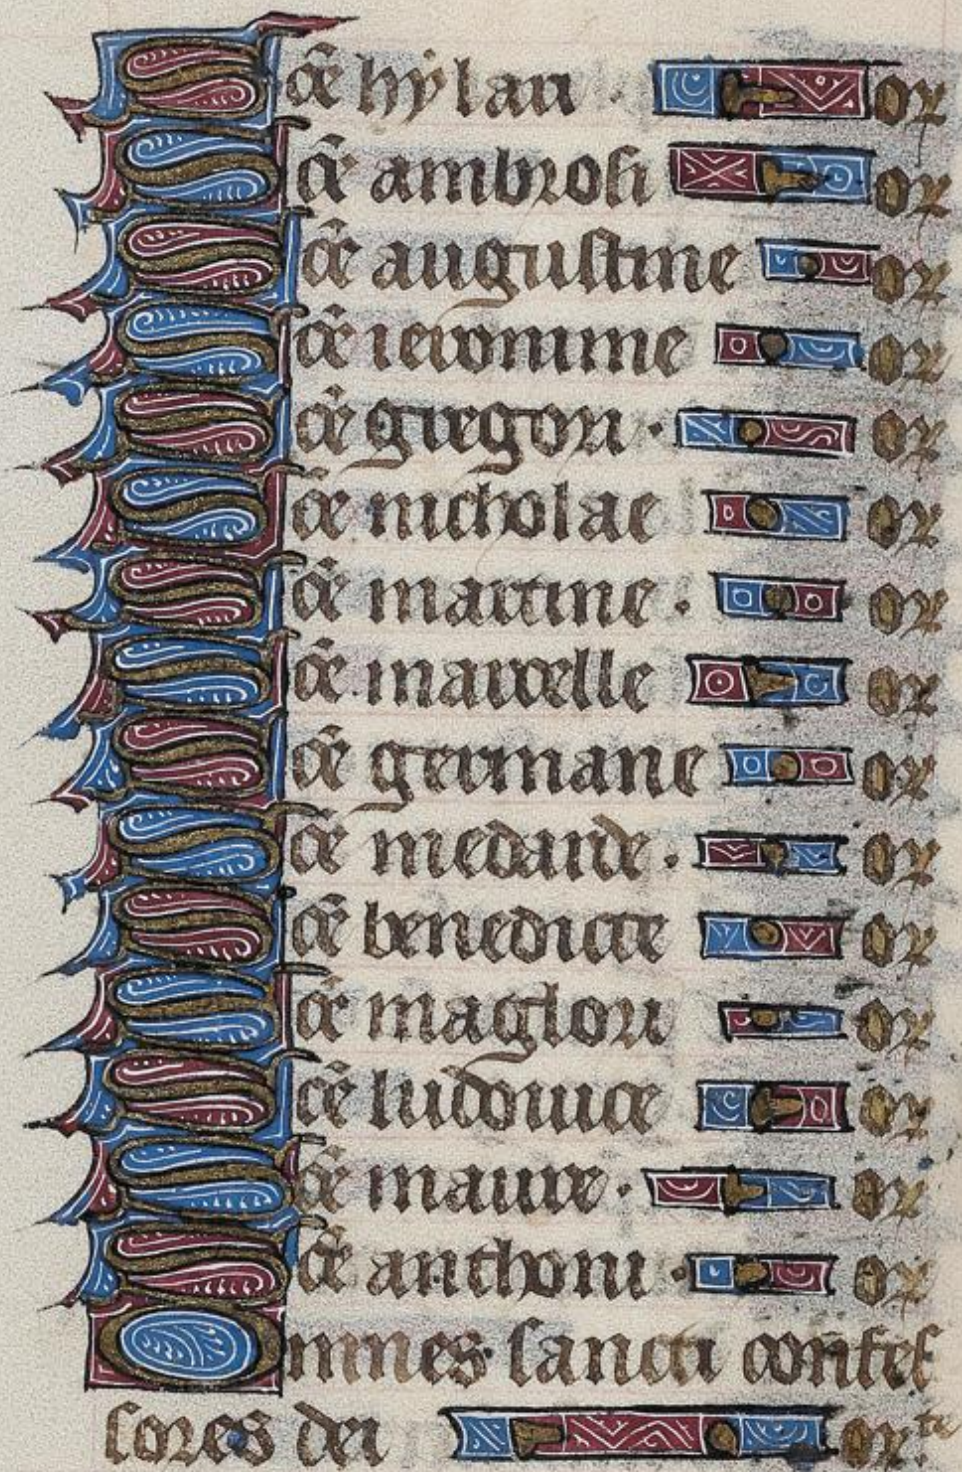 Sc̄e hẏlari · or
Sc̄e ambrosi or
Sc̄e augustine or
Sc̄e ieronime or
Sc̄e gregori · or
Sc̄e nicholae or
Sc̄e martine · or
Sc̄e marcelle or
Sc̄e germane or
Sc̄e medarde · or
Sc̄e benedicte or
Sc̄e maglori or
Sc̄e ludouice or
Sc̄e maure · or
Sc̄e anthoni · or
Omnes sancti confes
sores dei orte